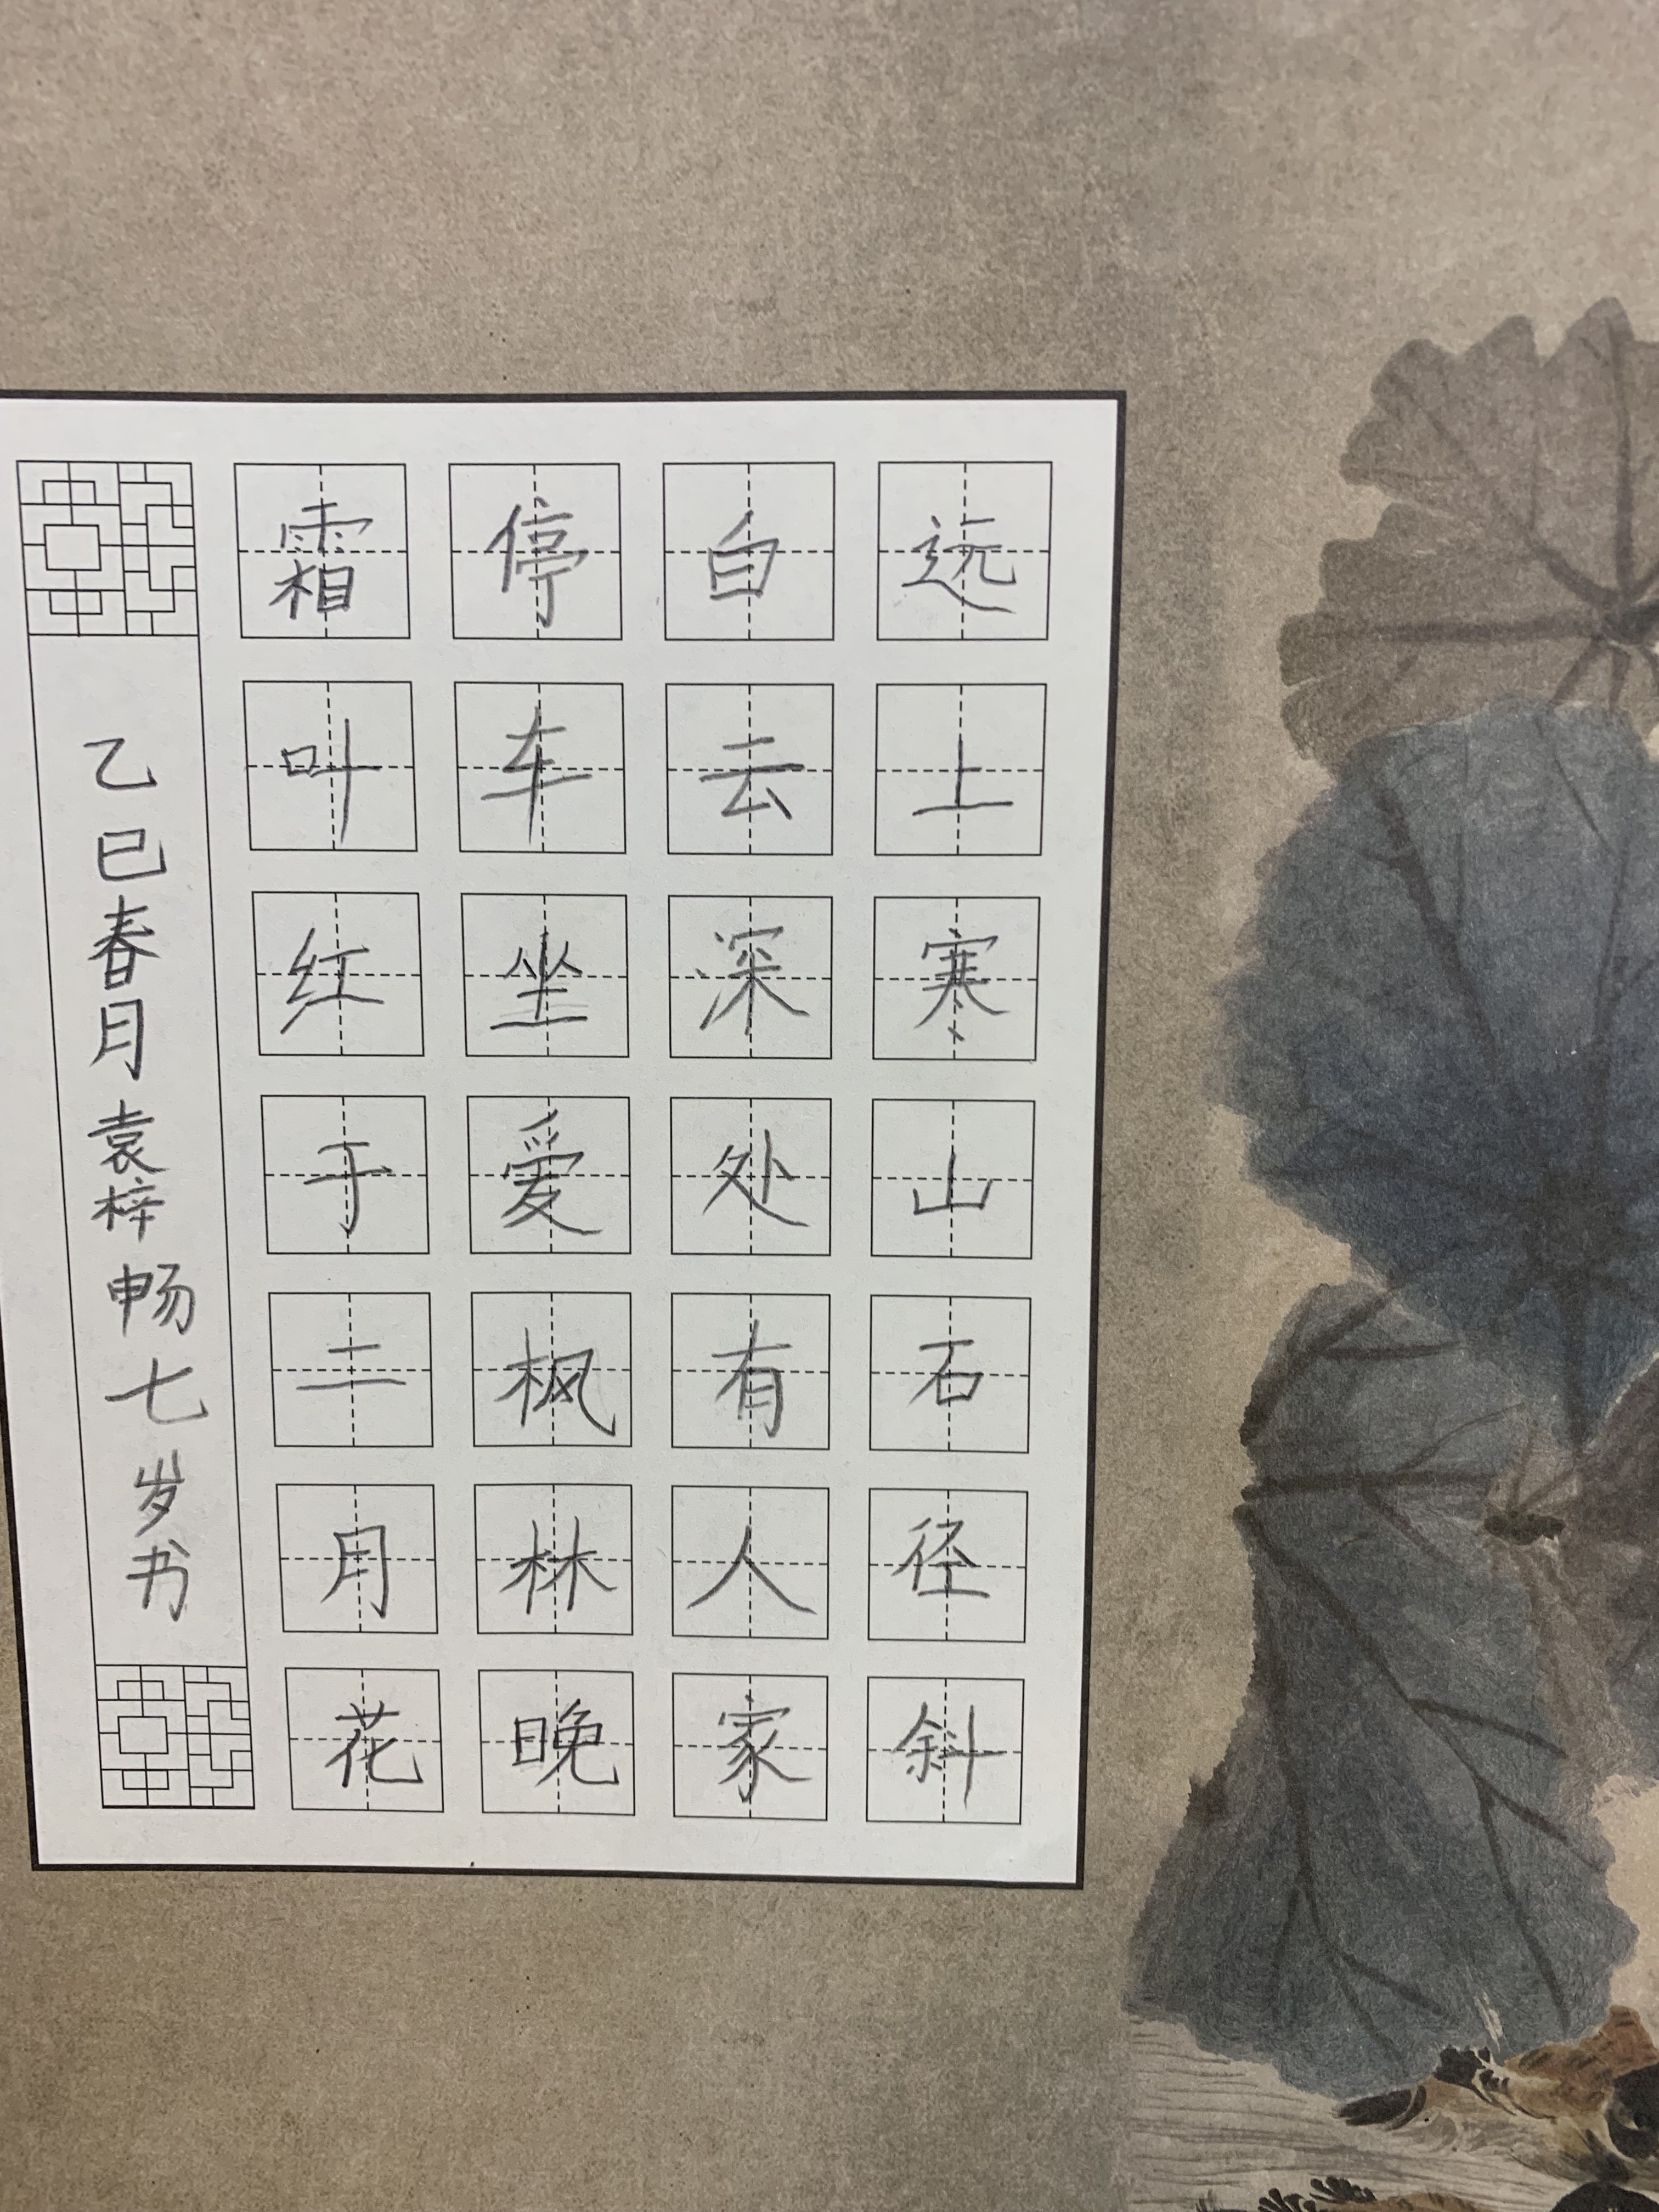 远上寒山石径斜
白云深处有人家
停车坐爱枫林晚
霜叶红于二月花
乙巳春月袁梓畅七岁书